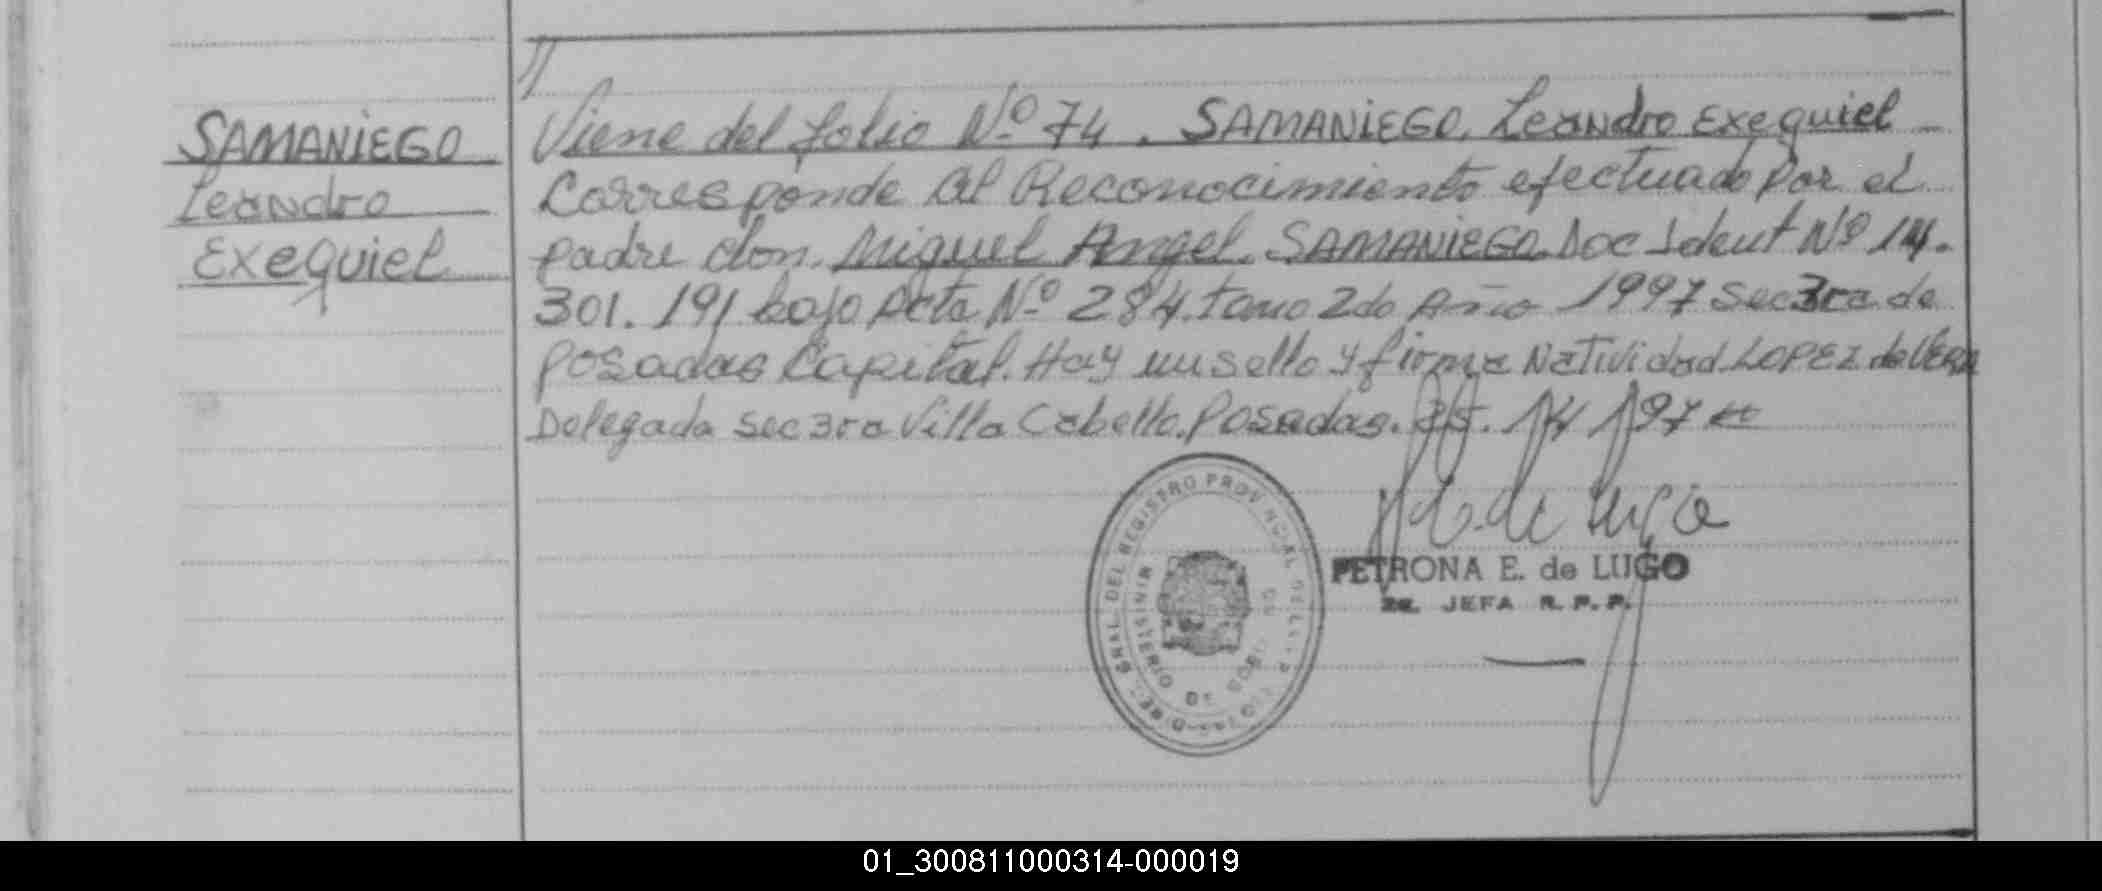 SAMANIEGO
Leandro
Exequiel
//
Viene del folio Nº 74. SAMANIEGO, Leandro Exequiel
Corresponde al Reconocimiento efectuado por el
padre don. Miguel Angel. SAMANIEGO. Doc Ident Nº 14.
301. 191 bajo Acta Nº 284. tomo 2do Año 1997 Sec 3ra. de
Posadas Capital. Hay un sello y firma Natividad LOPEZ de VERA
Delegada Sec 3ra Villa Cabello. Posadas.
DEL REGISTRO PROVINCIAL DE
MINISTERIO DE GOBIERNO
PETRONA E. de LUGO
JEFA R. P. P.
01_300811000314-000019